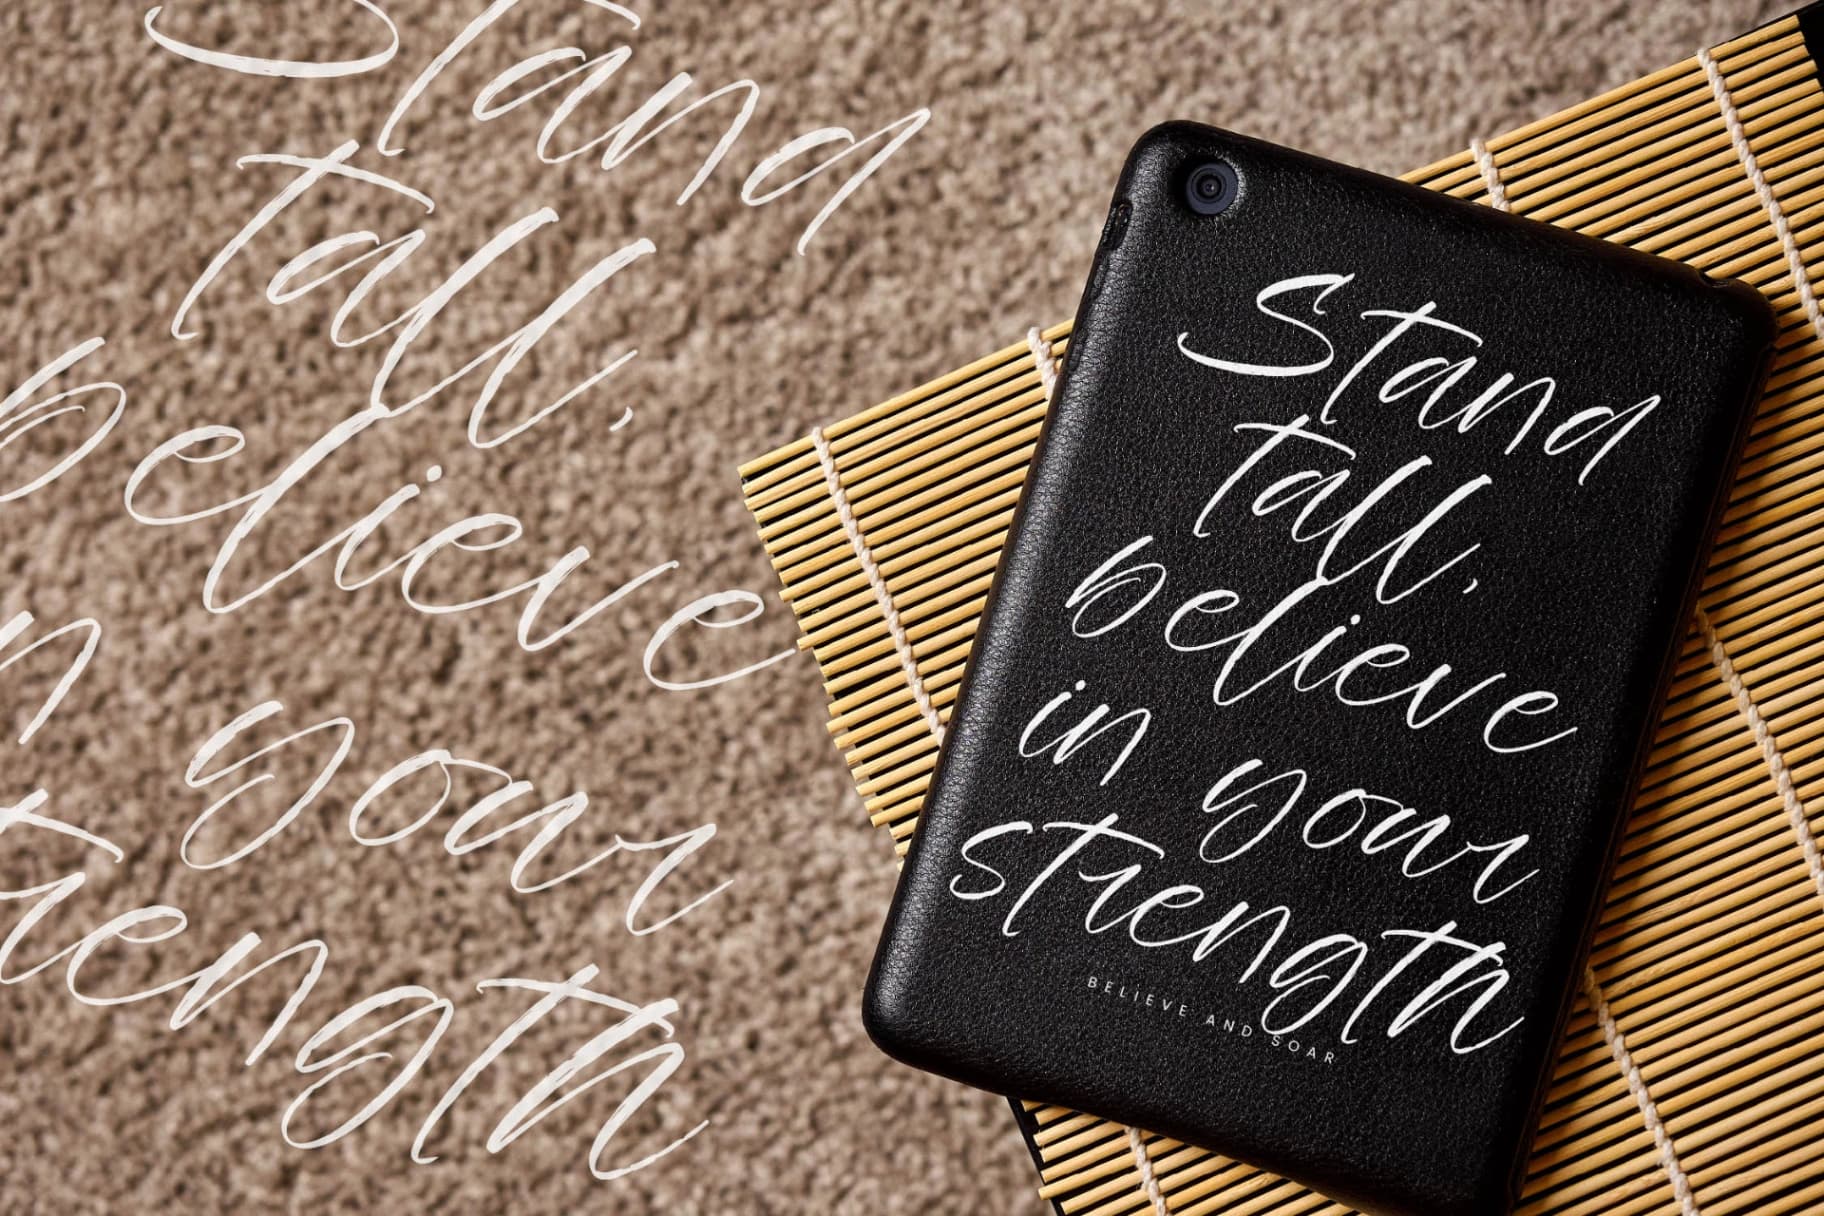 Stand
tall,
believe
in your
strength
Stand
tall,
believe
in your
strength
BELIEVE AND SOAR